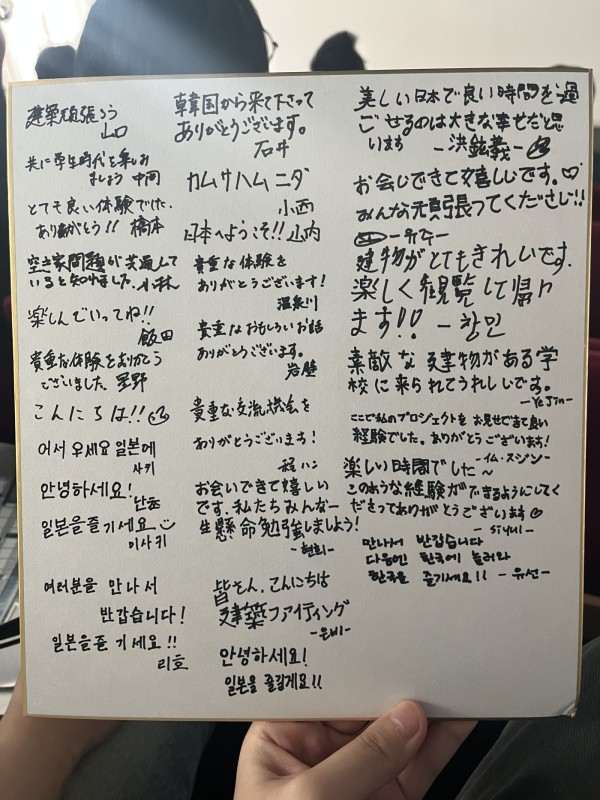 建築頑張ろう
山口
共に学生時代を楽しみ
ましょう 中岡
とても良い体験でした。
ありがとう!! 橋本
空き家問題が共通して
いると知りました。小林
楽しんでいってね!!
飯田
貴重な体験をありがとう
ございました 星野
こんにちは!!
어서 오세요 일본에
사키
안녕하세요!
난초
일본을 즐기세요
미사키
여러분을 만나서
반갑습니다!
일본을 즐기세요!!
리호
韓国から来て下さって
ありがとうございます。
石井
カムサハムニダ
小西
日本へようこそ!! 山内
貴重な体験を
ありがとうございます!
温泉川
貴重なおもしろいお話
ありがとうございます。
岩壁
貴重な交流機会を
ありがとうございます!
程ハン
お会いできて嬉しい
です。私たちみんな一
生懸命勉強しましょう!
-현희-
皆さん、こんにちは
建築ファイティング
-은비-
안녕하세요!
일본을 즐길게요!!
美しい日本で良い時間を過
ごせるのは大きな幸せだと思
います -洪鉉義-
お会いできて嬉しいです。
みんな頑張ってください!!
-유주-
建物がとてもきれいです.
楽しく観覧して帰り
ます!! -창민
素敵な建物がある学
校に来られてうれしいです。
-YeJin-
ここで私のプロジェクトをお見せできて良い
経験でした。ありがとうございます!
-イム・スジン-
楽しい時間でした~
このような経験ができるようにしてく
ださってありがとうございます
- siyul -
만나서 반갑습니다
다음엔 한국에 놀러와
한국을 즐기세요!! -유선-